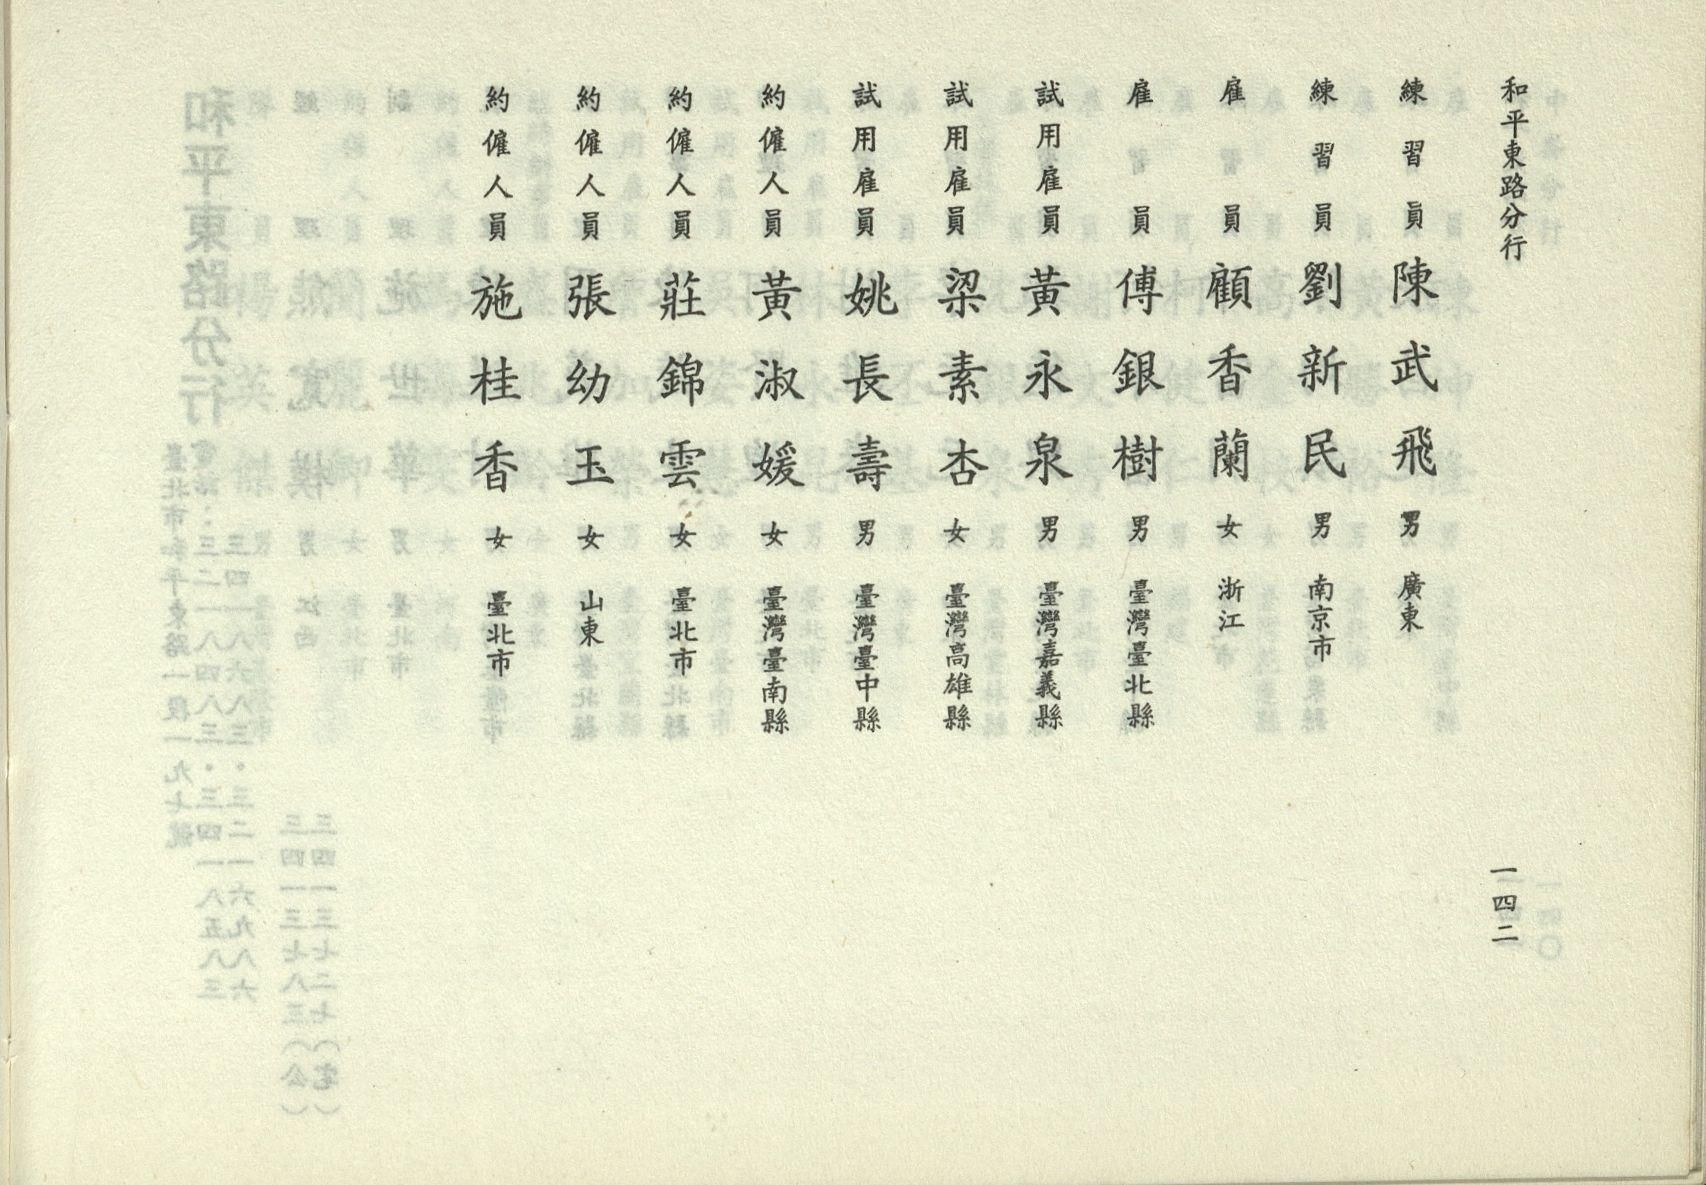 和平東路分行
一四二
練習員 陳武飛 男 廣東
練習員 劉新民 男 南京市
雇員 顧香蘭 女 浙江
雇員 傅銀樹 男 臺灣臺北縣
試用雇員 黃永泉 男 臺灣嘉義縣
試用雇員 梁素杏 女 臺灣高雄縣
試用雇員 姚長壽 男 臺灣臺中縣
約僱人員 黃淑媛 女 臺灣臺南縣
約僱人員 莊錦雲 女 臺北市
約僱人員 張幼玉 女 山東
約僱人員 施桂香 女 臺北市